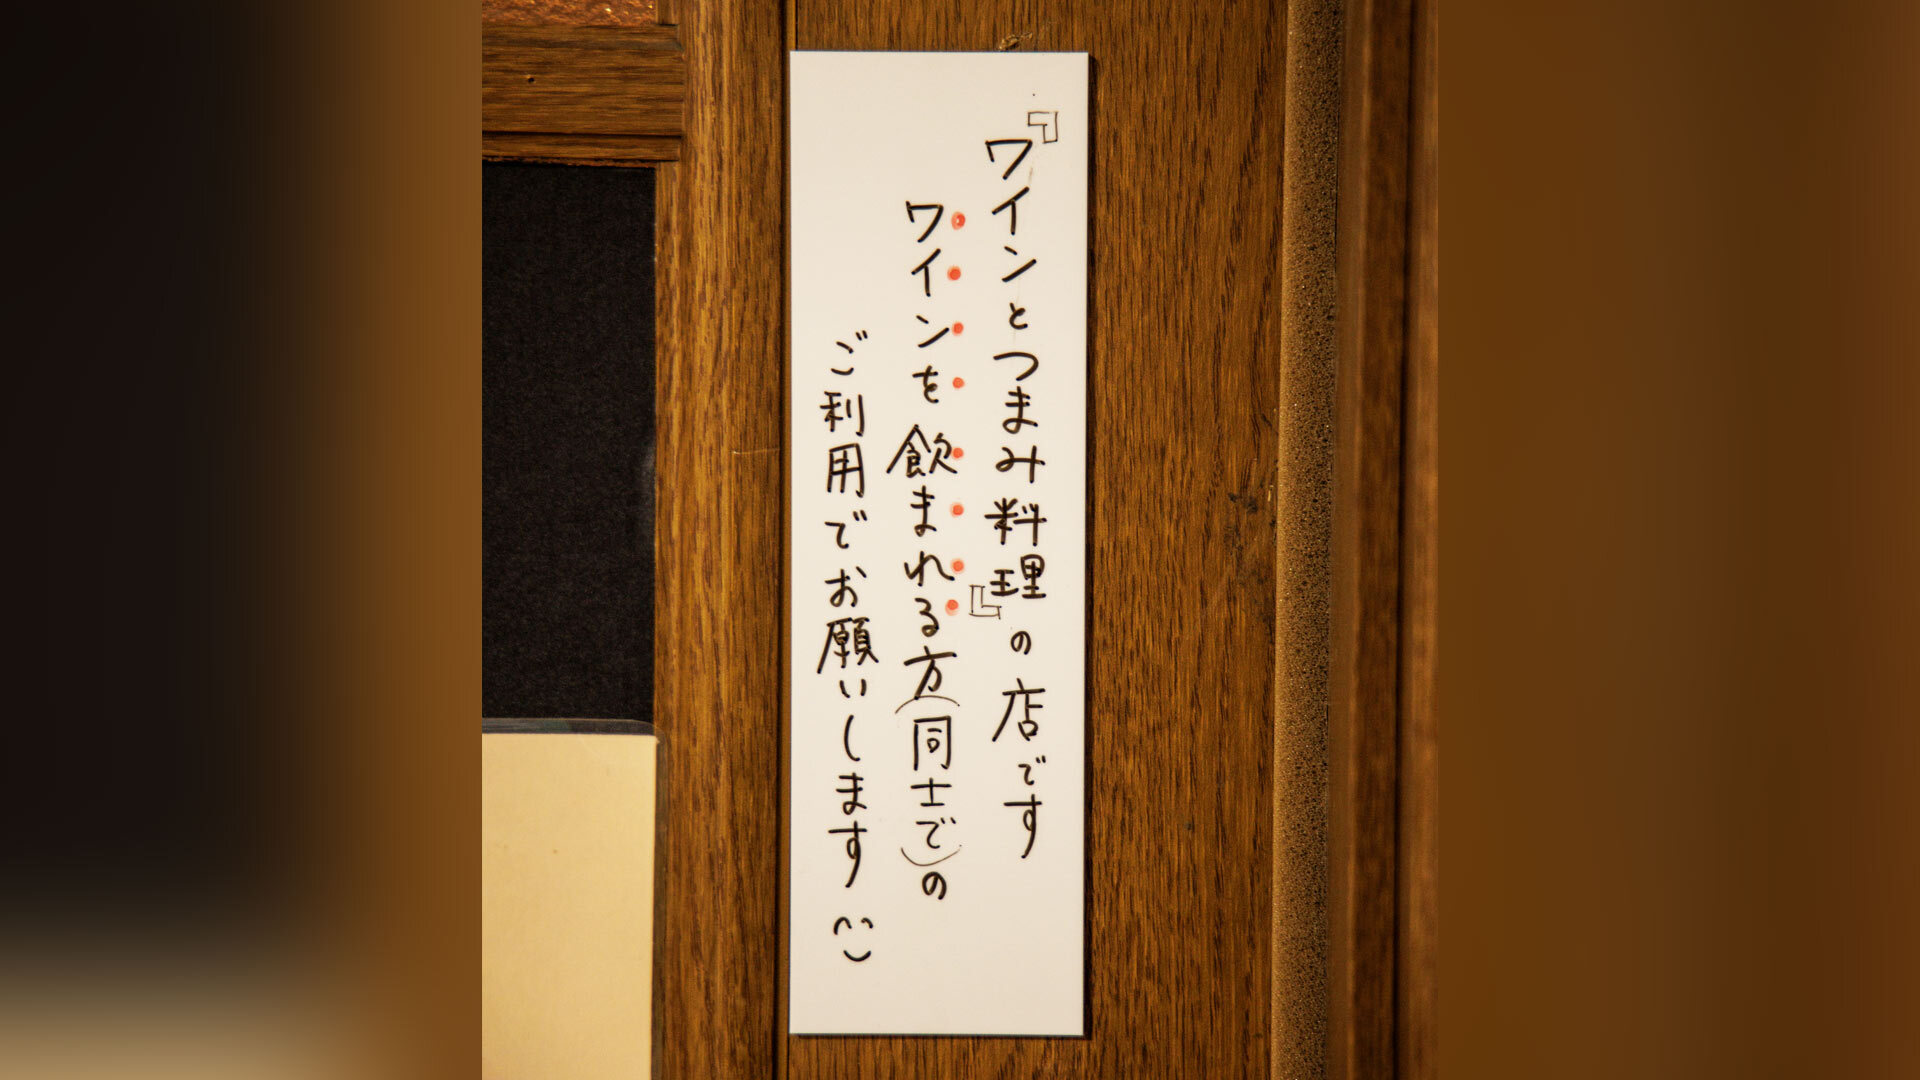 『ワインとつまみ料理』の店です
ワインを飲まれる方(同士で)の
ご利用でお願いします